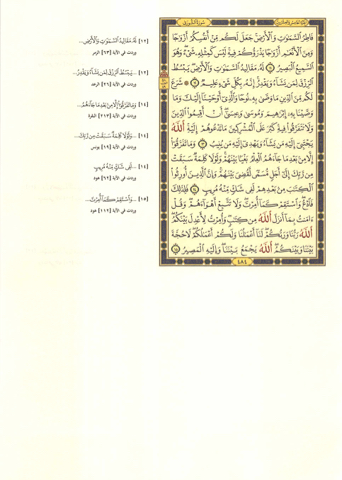 الجزء الخامس والعشرون
سورة الشورى
فَاطِرُ السَّمَٰوَٰتِ وَالْأَرْضِ جَعَلَ لَكُم مِّنْ أَنفُسِكُمْ أَزْوَٰجًا
وَمِنَ الْأَنْعَٰمِ أَزْوَٰجًا يَذْرَؤُكُمْ فِيهِ لَيْسَ كَمِثْلِهِ شَىْءٌ وَهُوَ
السَّمِيعُ الْبَصِيرُ ۝١١ لَهُ مَقَالِيدُ السَّمَٰوَٰتِ وَالْأَرْضِ يَبْسُطُ
الرِّزْقَ لِمَن يَشَاءُ وَيَقْدِرُ إِنَّهُ بِكُلِّ شَىْءٍ عَلِيمٌ ۝١٢ ۞ شَرَعَ
لَكُم مِّنَ الدِّينِ مَا وَصَّىٰ بِهِ نُوحًا وَالَّذِى أَوْحَيْنَا إِلَيْكَ وَمَا
وَصَّيْنَا بِهِ إِبْرَٰهِيمَ وَمُوسَىٰ وَعِيسَىٰ أَنْ أَقِيمُوا الدِّينَ
وَلَا تَتَفَرَّقُوا فِيهِ كَبُرَ عَلَى الْمُشْرِكِينَ مَا تَدْعُوهُمْ إِلَيْهِ اللَّهُ
يَجْتَبِى إِلَيْهِ مَن يَشَاءُ وَيَهْدِى إِلَيْهِ مَن يُنِيبُ ۝١٣ وَمَا تَفَرَّقُوا
إِلَّا مِن بَعْدِ مَا جَاءَهُمُ الْعِلْمُ بَغْيًا بَيْنَهُمْ وَلَوْلَا كَلِمَةٌ سَبَقَتْ
مِن رَّبِّكَ إِلَىٰ أَجَلٍ مُّسَمًّى لَّقُضِىَ بَيْنَهُمْ وَإِنَّ الَّذِينَ أُورِثُوا
الْكِتَٰبَ مِن بَعْدِهِمْ لَفِى شَكٍّ مِّنْهُ مُرِيبٍ ۝١٤ فَلِذَٰلِكَ
فَادْعُ وَاسْتَقِمْ كَمَا أُمِرْتَ وَلَا تَتَّبِعْ أَهْوَاءَهُمْ وَقُلْ
ءَامَنتُ بِمَا أَنزَلَ اللَّهُ مِن كِتَٰبٍ وَأُمِرْتُ لِأَعْدِلَ بَيْنَكُمُ
اللَّهُ رَبُّنَا وَرَبُّكُمْ لَنَا أَعْمَٰلُنَا وَلَكُمْ أَعْمَٰلُكُمْ لَا حُجَّةَ
بَيْنَنَا وَبَيْنَكُمُ اللَّهُ يَجْمَعُ بَيْنَنَا وَإِلَيْهِ الْمَصِيرُ ۝١٥
٤٨٤
[١٢] لَهُ مَقَالِيدُ السَّمَٰوَٰتِ وَالْأَرْضِ...
وردت في الآية [٦٣] الزمر
[١٢] ...يَبْسُطُ الرِّزْقَ لِمَن يَشَاءُ وَيَقْدِرُ...
وردت في الآية [٢٦] الرعد
[١٤] وَمَا تَفَرَّقُوا إِلَّا مِن بَعْدِ مَا جَاءَهُمُ...
وردت في الآية [٢١٣] البقرة
[١٤] ...وَلَوْلَا كَلِمَةٌ سَبَقَتْ مِن رَّبِّكَ...
وردت في الآية [١٩] يونس
[١٤] ...لَفِى شَكٍّ مِّنْهُ مُرِيبٍ
وردت في الآية [٦٢] هود
[١٥] ...وَاسْتَقِمْ كَمَا أُمِرْتَ...
وردت في الآية [١١٢] هود